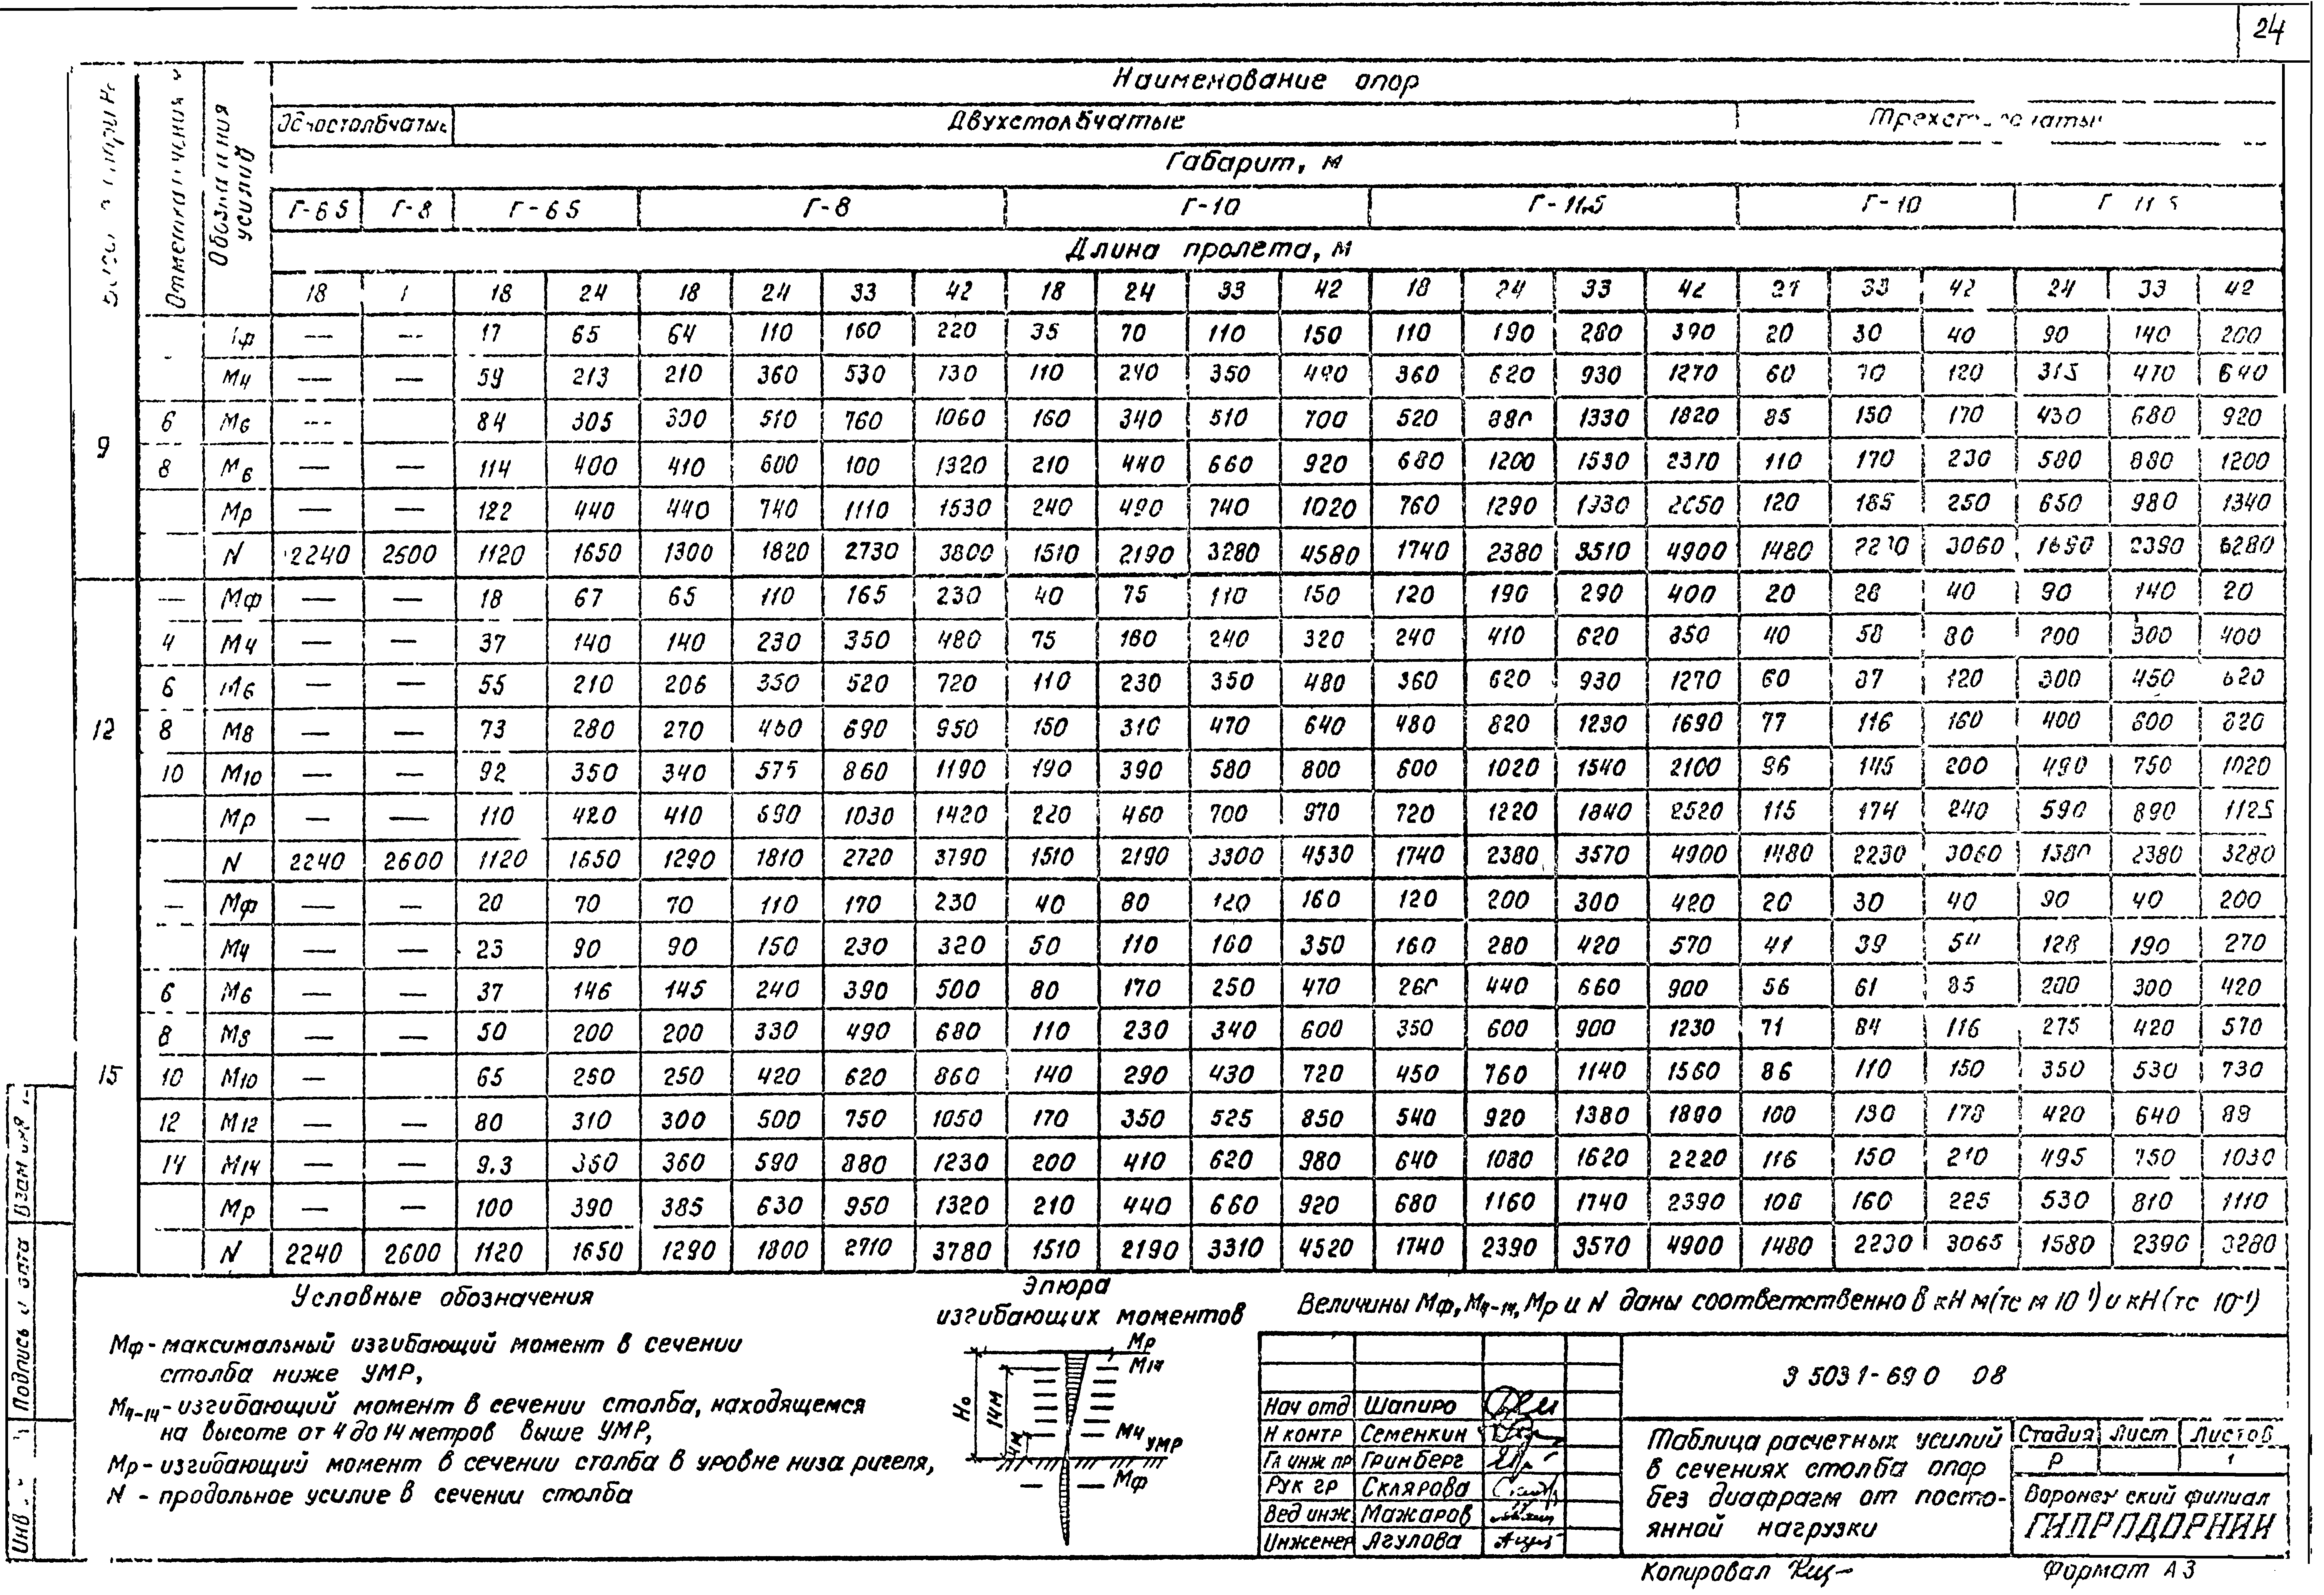 24
Наименование опор
Двухстолбчатые
Габарит, м
Отметка сечения
Обозначения усилий
Г-6 5 Г-8 Г-6 5 Г-8 Г-10 Г-11,5 Г-10 Г 11 5
Длина пролета, м
18 1 18 24 18 24 33 42 18 24 33 42 18 24 33 42 21 33 42 24 33 42
— — 17 65 64 110 160 220 35 70 110 150 110 190 280 390 20 30 40 90 140 200
М4 — — 59 213 210 360 530 730 110 240 350 490 360 620 930 1270 60 70 120 315 470 640
6 М6 --- 84 305 300 510 760 1060 160 340 510 700 520 880 1330 1820 85 130 170 430 680 920
9
8 М6 — — 114 400 410 600 100 1320 210 440 660 920 680 1200 1530 2370 110 170 230 580 880 1200
Мр — — 122 440 440 740 1110 1530 240 490 740 1020 760 1290 1930 2650 120 185 250 650 980 1340
N 2240 2600 1120 1650 1300 1820 2730 3800 1510 2190 3280 4580 1740 2380 3510 4900 1480 2230 3060 1690 2390 6280
— Мф — — 18 67 65 110 165 230 40 75 110 150 120 190 290 400 20 28 40 90 140 20
4 М4 — — 37 140 140 230 350 480 75 160 240 320 240 410 620 850 40 58 80 200 300 400
6 М6 — — 55 210 206 350 520 720 110 230 350 480 360 620 930 1270 60 87 120 300 450 620
12 8 М8 — — 73 280 270 460 690 950 150 310 470 640 480 820 1230 1690 77 116 160 400 600 820
10 М10 — — 92 350 340 575 860 1190 190 390 580 800 600 1020 1540 2100 96 145 200 490 750 1020
Мр — — 110 420 410 690 1030 1420 220 460 700 970 720 1220 1840 2520 115 174 240 590 890 1125
N 2240 2600 1120 1650 1290 1810 2720 3790 1510 2190 3300 4530 1740 2380 3570 4900 1480 2230 3060 1580 2380 3280
— Мф — — 20 70 70 110 170 230 40 80 120 160 120 200 300 420 20 30 40 90 40 200
М4 — — 23 90 90 150 230 320 50 110 160 350 160 280 420 570 41 39 54 128 190 270
6 М6 — — 37 146 145 240 390 500 80 170 250 470 260 440 660 900 56 61 85 200 300 420
8 М8 — — 50 200 200 330 490 680 110 230 340 600 350 600 900 1230 71 84 116 275 420 570
15 10 М10 — 65 250 250 420 620 860 140 290 430 720 450 760 1140 1560 86 110 150 350 530 730
12 М12 — — 80 310 300 500 750 1050 170 350 525 850 540 920 1380 1890 100 130 178 420 640 88
14 М14 — — 9.3 360 360 590 880 1230 200 410 620 980 640 1080 1620 2220 116 150 210 495 750 1030
Мр — — 100 390 385 630 950 1320 210 440 660 920 680 1160 1740 2390 108 160 225 530 810 1110
N 2240 2600 1120 1650 1290 1800 2710 3780 1510 2190 3310 4520 1740 2390 3570 4900 1480 2230 3065 1580 2390 3280
Условные обозначения
Мф - максимальный изгибающий момент в сечении
столба ниже УМР,
М4-14 - изгибающий момент в сечении столба, находящемся
на высоте от 4 до 14 метров выше УМР,
Мр - изгибающий момент в сечении столба в уровне низа ригеля,
N - продольное усилие в сечении столба
Эпюра
изгибающих моментов
Мр
М14
Н0
14м
4м
М4
УМР
Мф
Величины Мф, М4-14, Мр и N даны соответственно в кН м (тс м 10⁻¹) и кН (тс 10⁻¹)
3 503 1-69 0 08
Нач отд Шапиро
Н контр Семенкин
Гл инж пр Гринберг
Рук гр Склярова
Вед инж Мажаров
Инженер Агулова
Таблица расчетных усилий
в сечениях столба опор
без диафрагм от посто-
янной нагрузки
Стадия Лист Листов
Р 1
ский филиал
ГИПРОДОРНИИ
Копировал
Формат А3
Взам инв
Подпись и дата
Инв